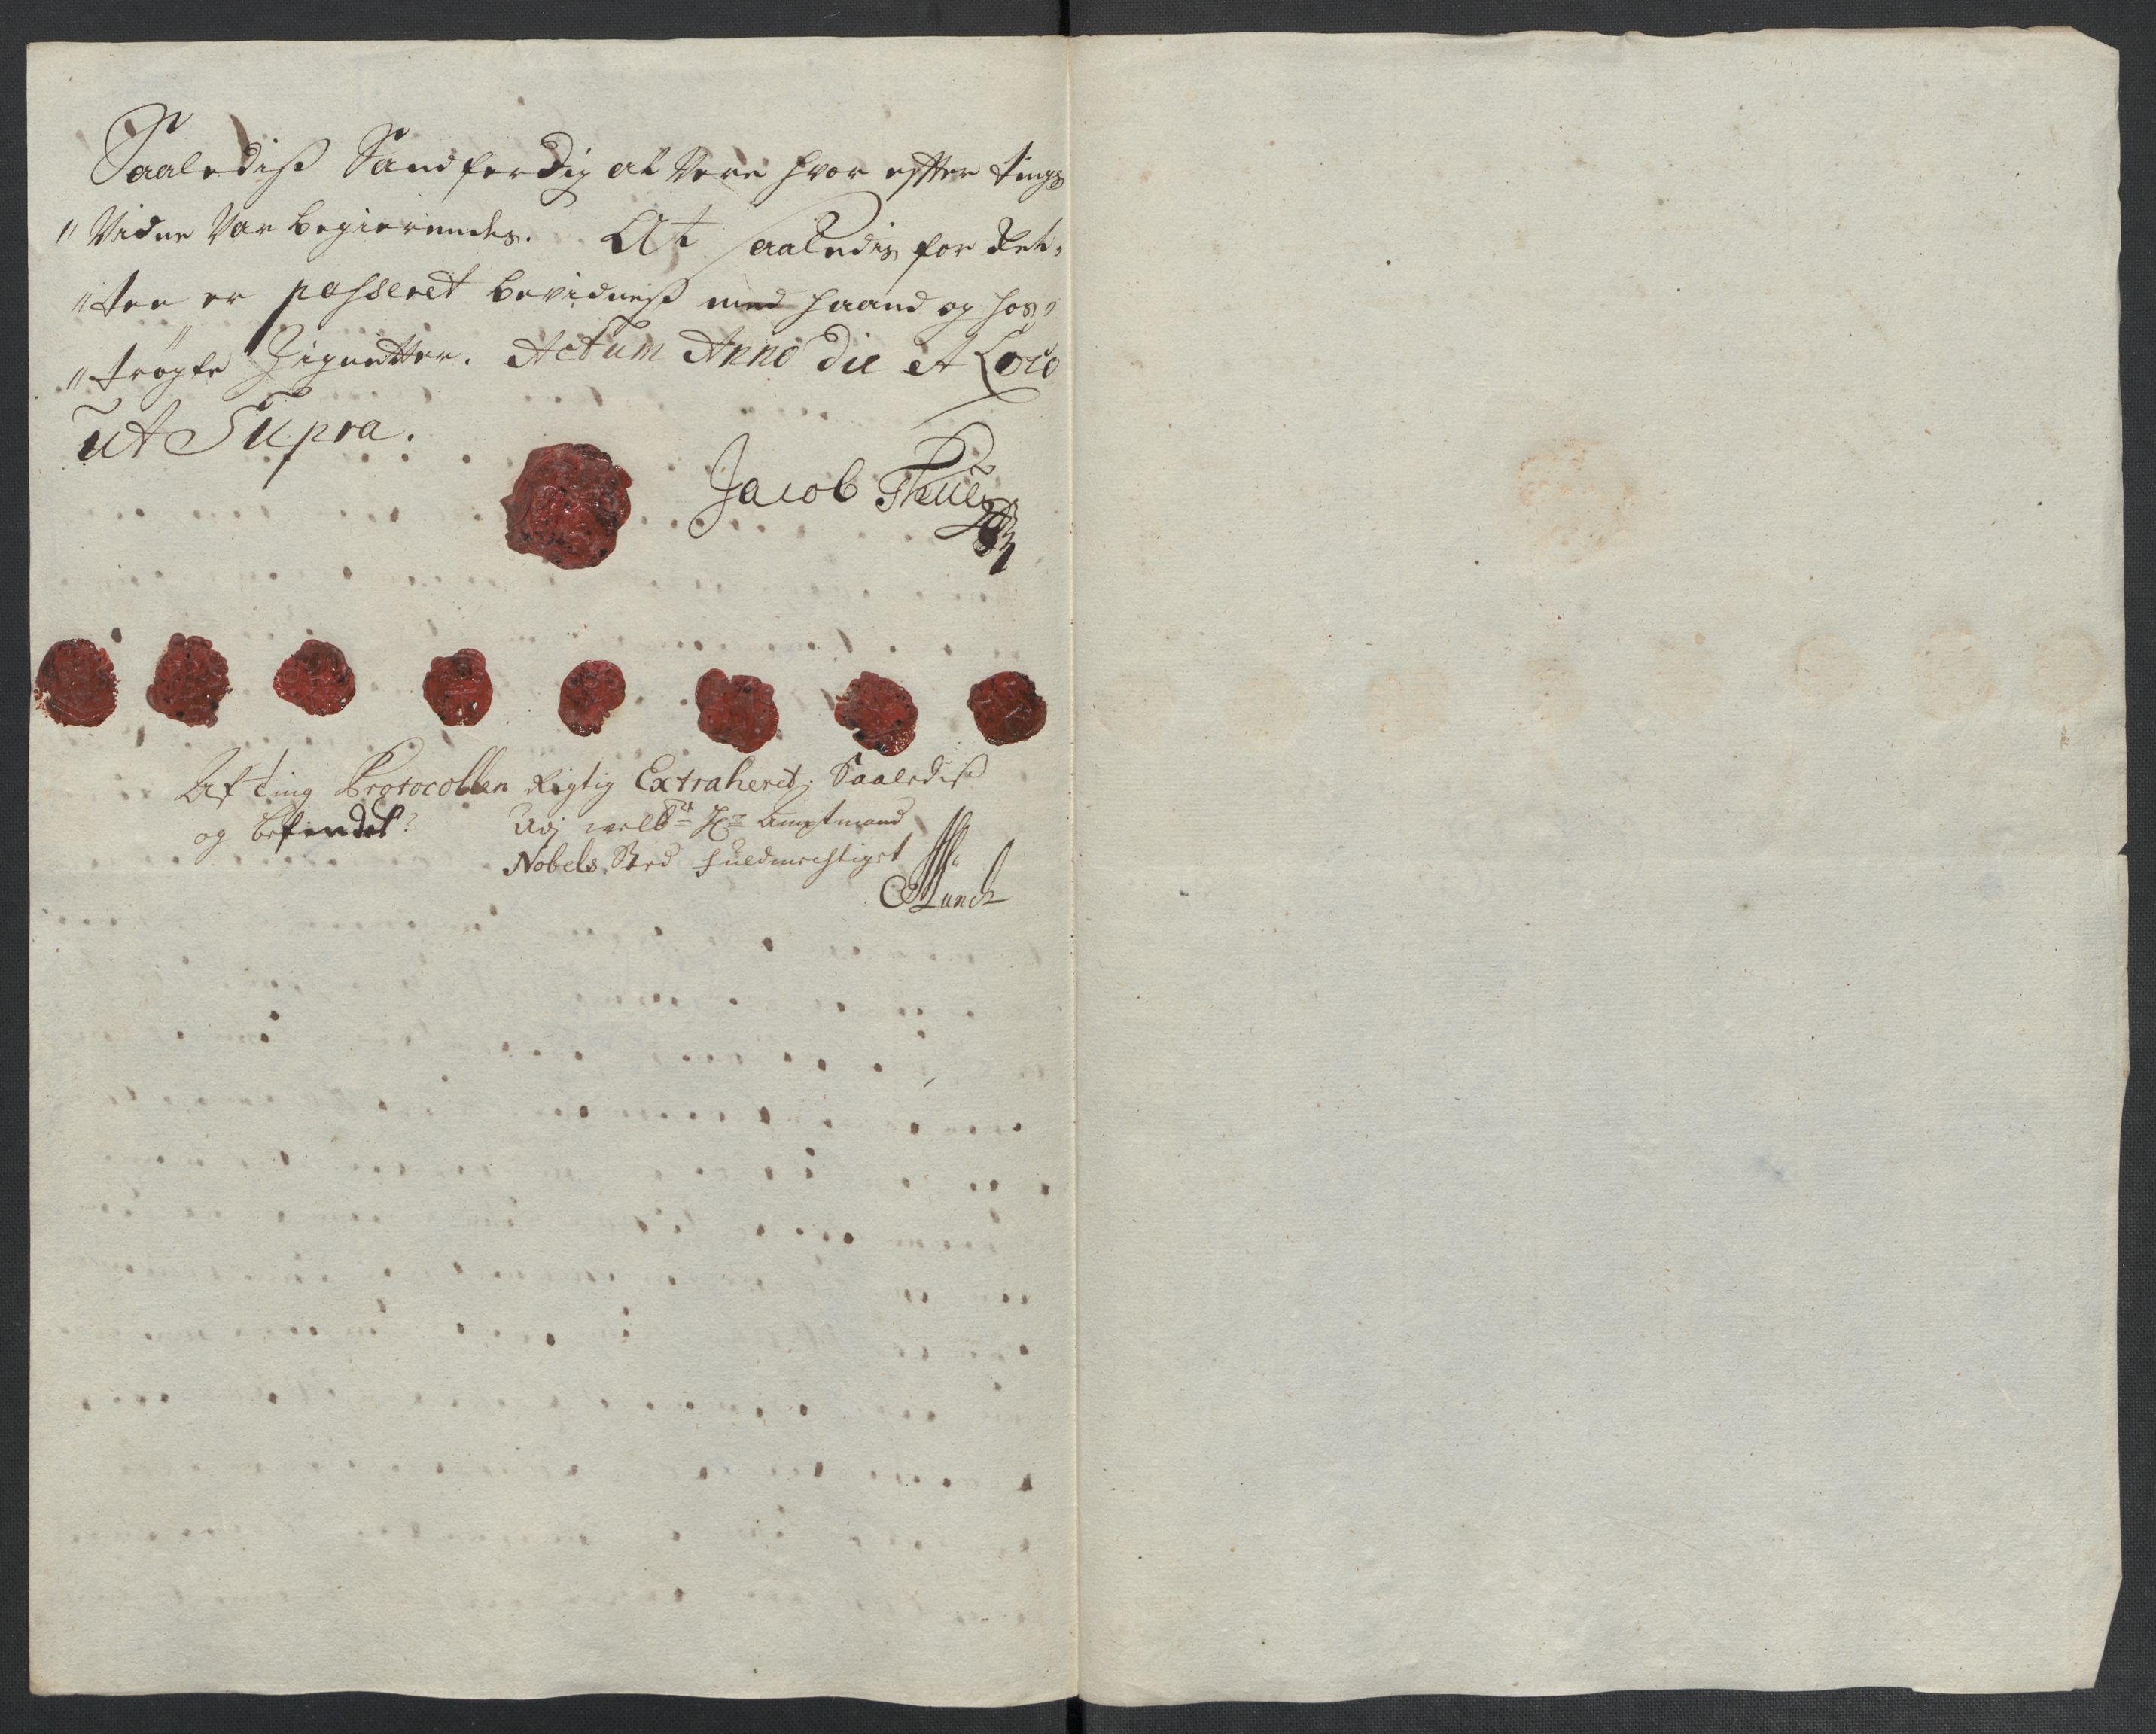 Saalediss Sandferdig at Vere hvor efter tings
" Vidne Var begierendes. At saaledis for Ret-
" ten er passeret bevidness med haand og hos-
" trøgte Zignetter. Actum Anno die et Loco
ut Supra.
Jacob Thue
Af ting Protocollen Rigtig Extraheret; Saalediss
og befindet
Udj welb: Hr: Amptmand
Nobels Sted fuldmechtiget
Munch